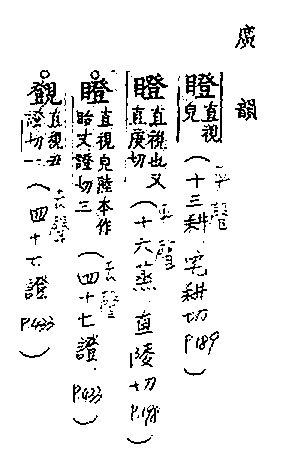 廣韻
瞪 直視皃 (十三耕.宅耕切 P189) 平聲
瞪 直視也又直庚切 (十六蒸.直陵切 P.198) 平聲
瞪 直視皃陸本作眙丈證切三 (四十七證 P.433) 去聲
覴 直視丑證切一 (四十七證 P.433) 去聲